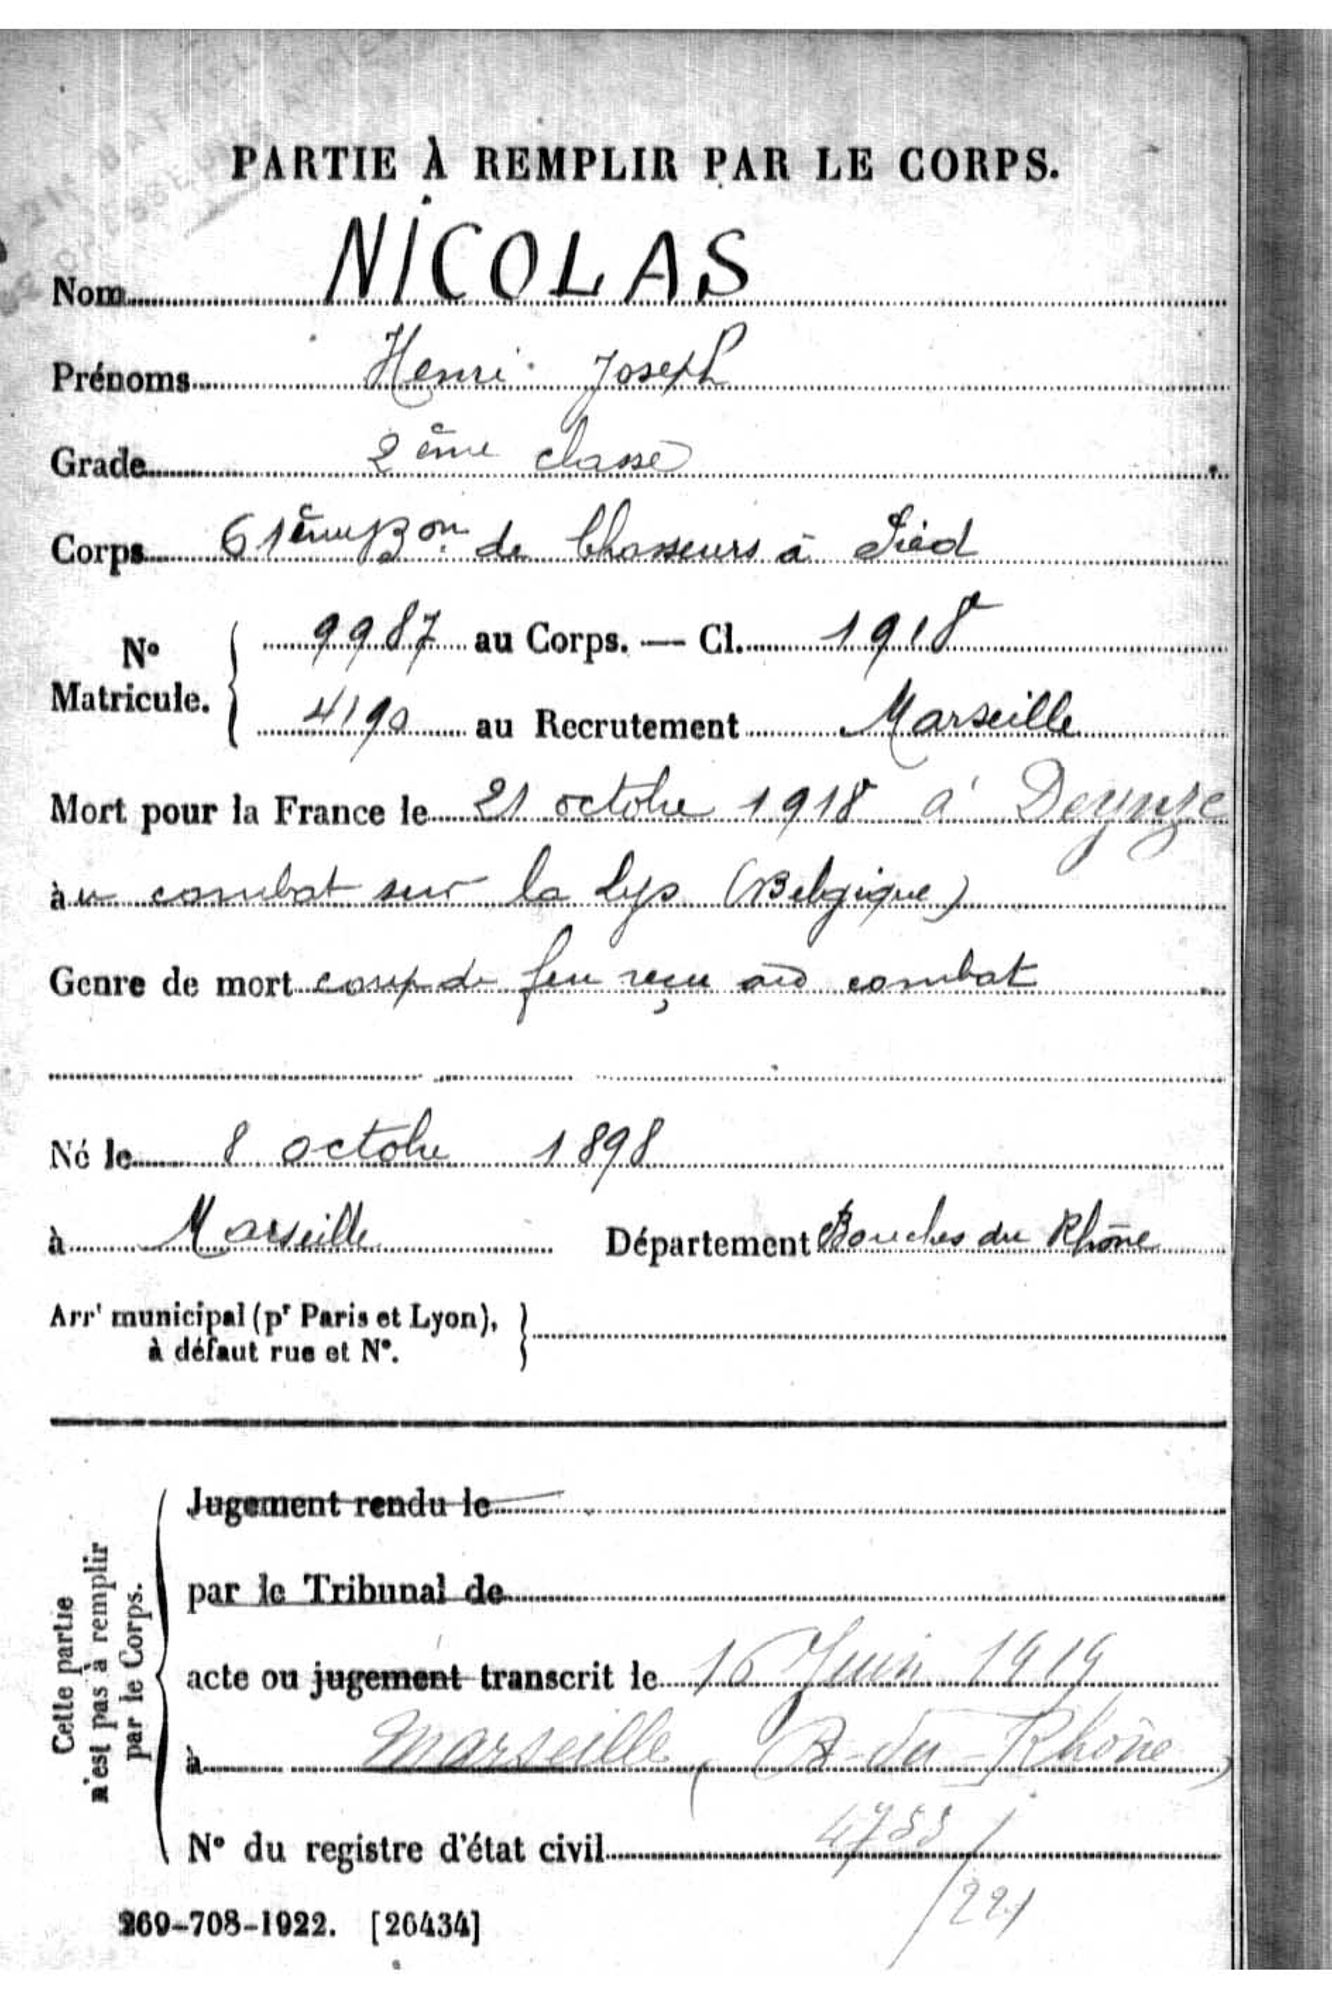 PARTIE À REMPLIR PAR LE CORPS.
Nom NICOLAS
Prénoms Henri Joseph
Grade 2ème classe
Corps 61ème Bon de Chasseurs à Pied
No Matricule. { 9987 au Corps. — Cl. 1918
4190 au Recrutement Marseille
Mort pour la France le 21 octobre 1918 à Deynze
au combat sur la Lys (Belgique)
Genre de mort coup de feu reçu au combat
Né le 8 octobre 1898
à Marseille Département Bouches du Rhône
Arrt municipal (pr Paris et Lyon), }
à défaut rue et No.
Cette partie
n'est pas à remplir
par le Corps.
Jugement rendu le
par le Tribunal de
acte ou jugement transcrit le 16 Juin 1919
à Marseille (B-du-Rhône)
No du registre d'état civil 4733/
/221
269-708-1922. [26434]